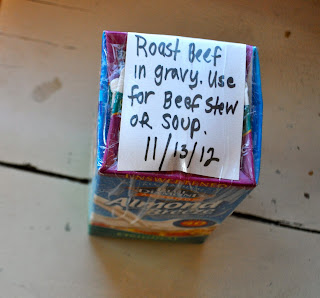 Roast Beef
in gravy. Use
for Beef Stew
OR Soup.
11/13/12
UNSWEETENED
Almond
Breeze